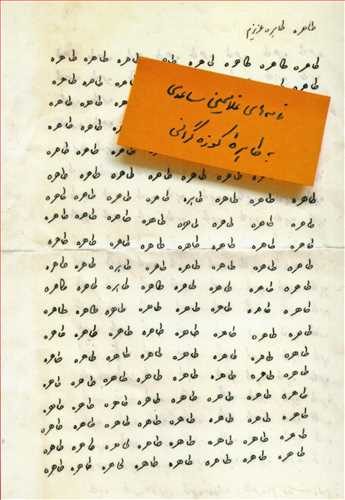 طاهره طاهره عزیزم
طاهره طاهره طاهره طاهره طاهره طاهره طاهره طاهره
طاهره طاهره طاهره
نامه‌های غلامحسین ساعدی
به طاهره کوزه‌گرانی
طاهره طاهره
طاهره طاهره
طاهره طاهره
طاهره طاهره طاهره طاهره
طاهره طاهره طاهره طاهره طاهره طاهره طاهره طاهره
طاهره طاهره طاهره طاهره طاهره طاهره طاهره طاهره
طاهره طاهره طاهره طاهره طاهره طاهره طاهره طاهره
طاهره طاهره طاهره طاهره طاهره طاهره طاهره طاهره
طاهره طاهره طاهره طاهره طاهره طاهره طاهره طاهره
طاهره طاهره طاهره طاهره طاهره طاهره طاهره طاهره
طاهره طاهره طاهره طاهره طاهره طاهره طاهره طاهره
طاهره طاهره طاهره طاهره طاهره طاهره طاهره طاهره
طاهره طاهره طاهره طاهره طاهره طاهره طاهره طاهره
طاهره طاهره طاهره طاهره طاهره طاهره طاهره طاهره
طاهره طاهره طاهره طاهره طاهره طاهره طاهره طاهره
طاهره طاهره طاهره طاهره طاهره طاهره طاهره طاهره
طاهره طاهره طاهره طاهره طاهره طاهره طاهره طاهره